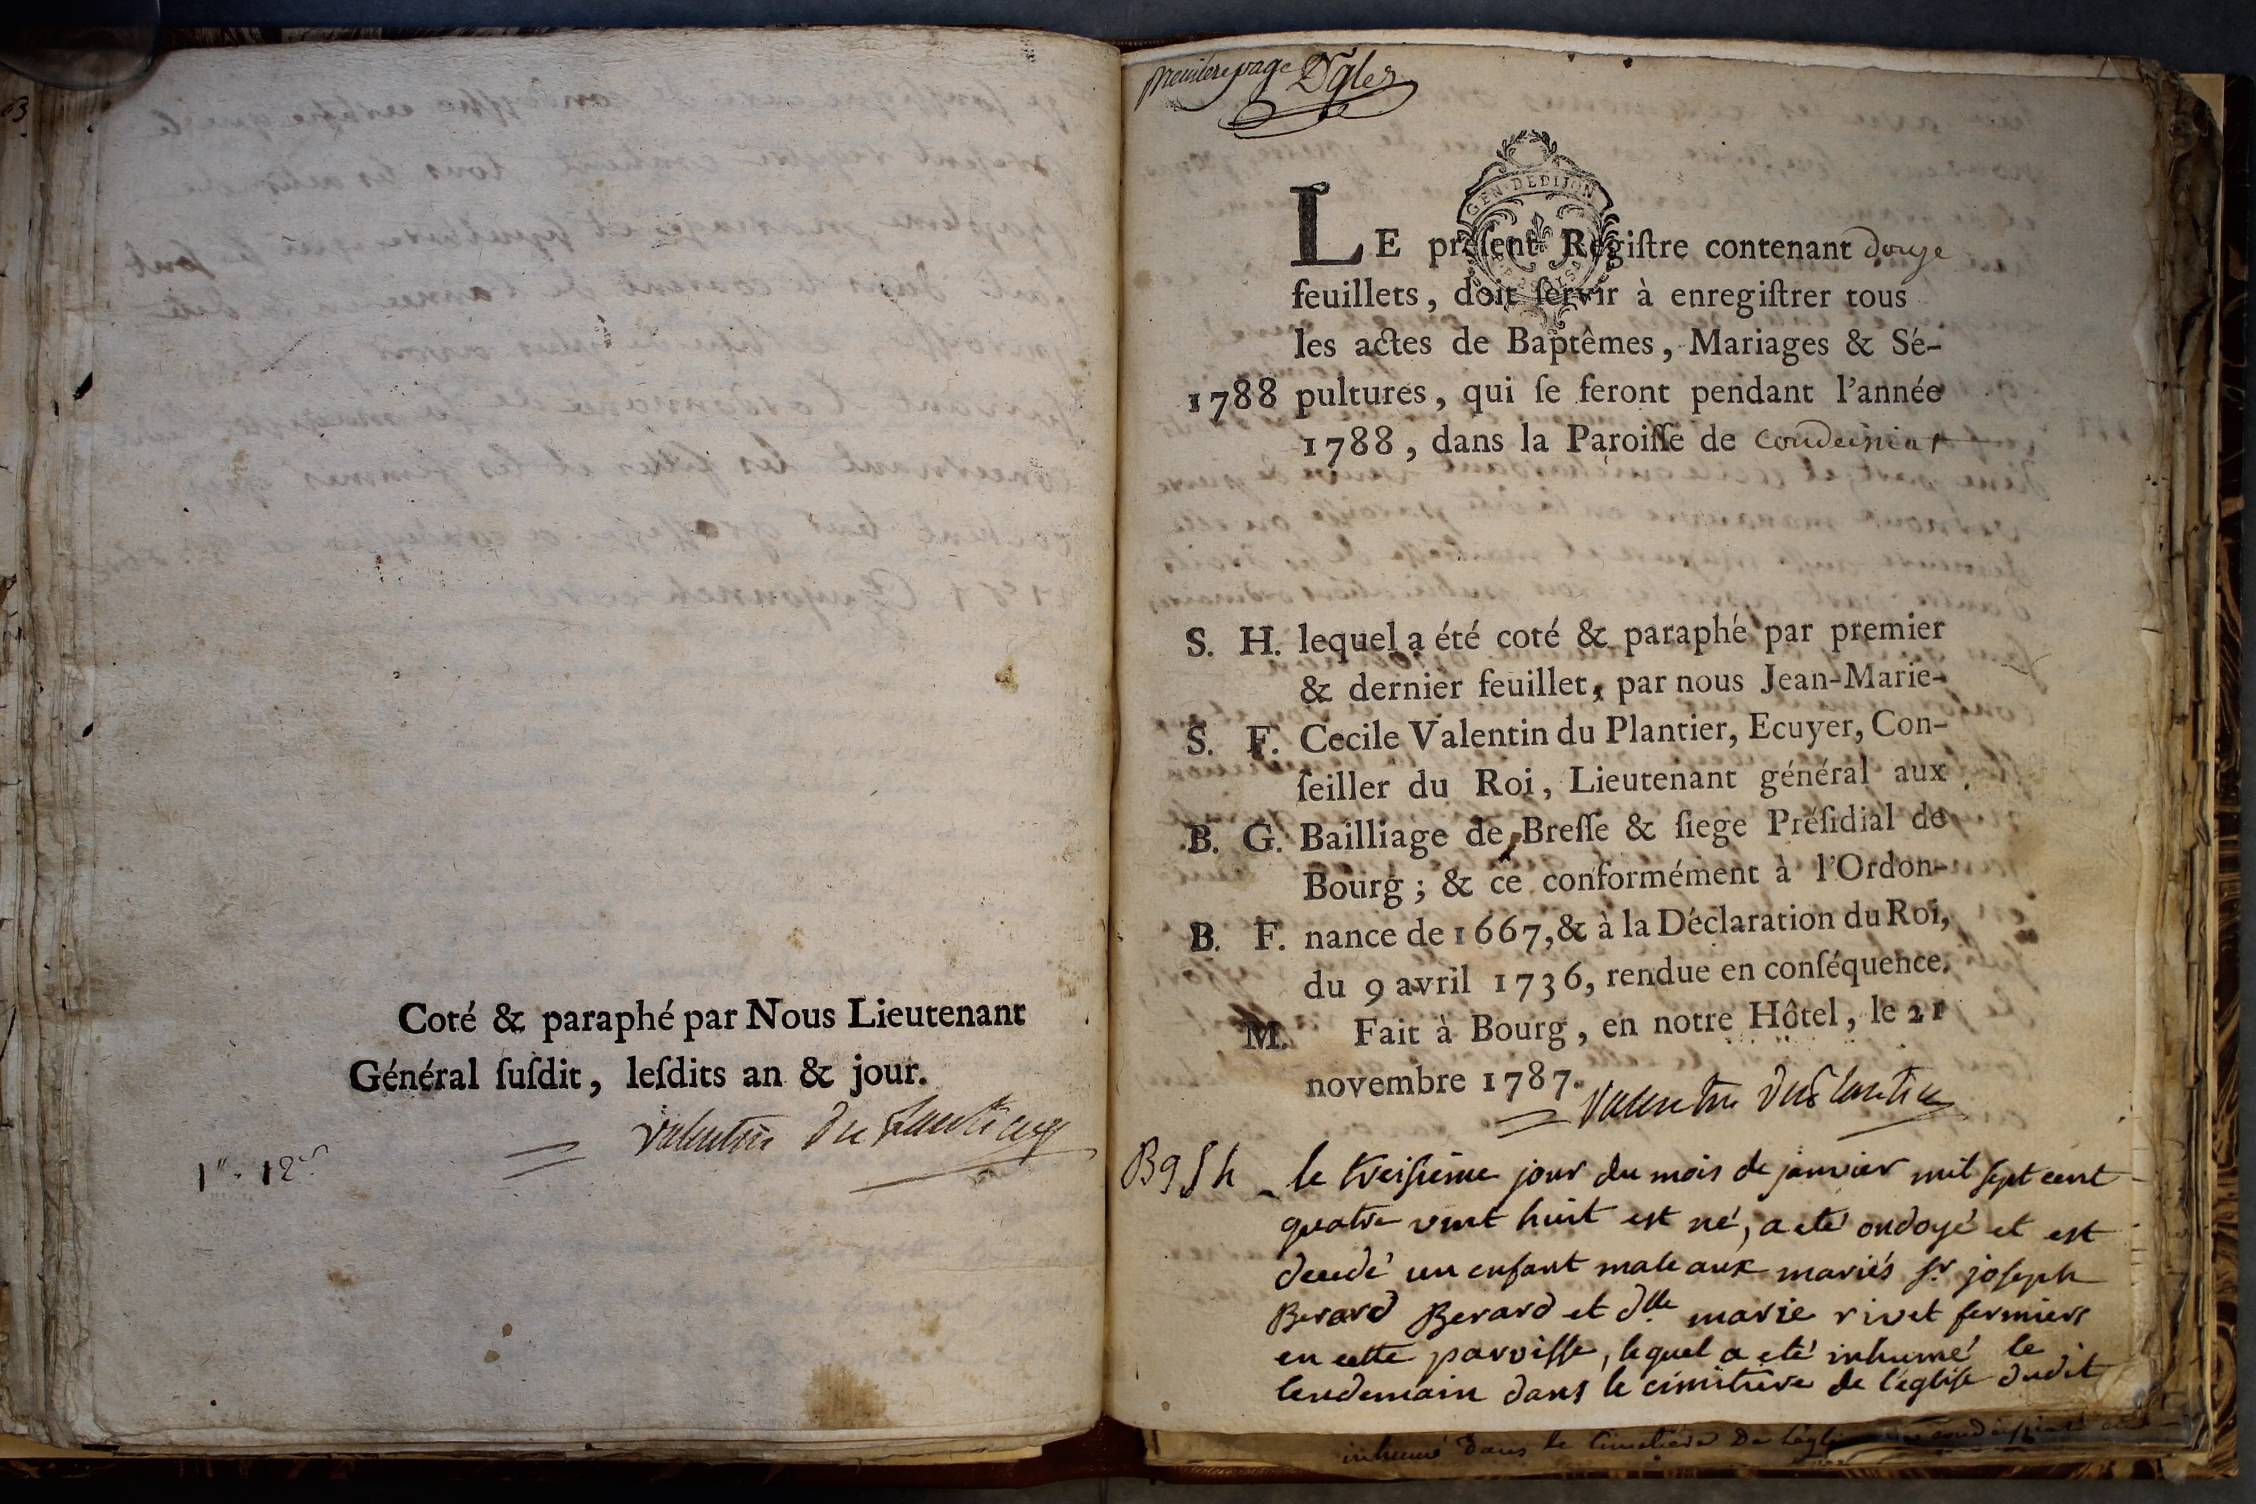 Coté & paraphé par Nous Lieutenant
Général ſuſdit, leſdits an & jour.
Valentin du Plantier
premiere page
GEN. DE DIJON
LE préſent Regiſtre contenant douze
feuillets, doit ſervir à enregiſtrer tous
les actes de Baptêmes, Mariages & Sé-
1788 pultures, qui ſe feront pendant l'année
1788, dans la Paroiſſe de
S. H. lequel a été coté & paraphé par premier
& dernier feuillet, par nous Jean-Marie-
S. F. Cecile Valentin du Plantier, Ecuyer, Con-
ſeiller du Roi, Lieutenant général aux
B. G. Bailliage de Breſſe & ſiege Préſidial de
Bourg ; & ce conformément à l'Ordon-
B. F. nance de 1667, & à la Déclaration du Roi,
du 9 avril 1736, rendue en conſéquence.
M. Fait à Bourg, en notre Hôtel, le 21
novembre 1787.
Valentin du Plantier
le treiſieme jour du mois de janvier mil ſept cent
quatre vint huit est né, a eté ondoyé et est
decedé un enfant male aux mariés Sr joſeph
Berard Berard et dlle marie rivet fermiers
en cette paroiſſe, lequel a eté inhumé le
lendemain dans le cimitiere de l'égliſe dudit
inhumé Dans le Cimetiere De